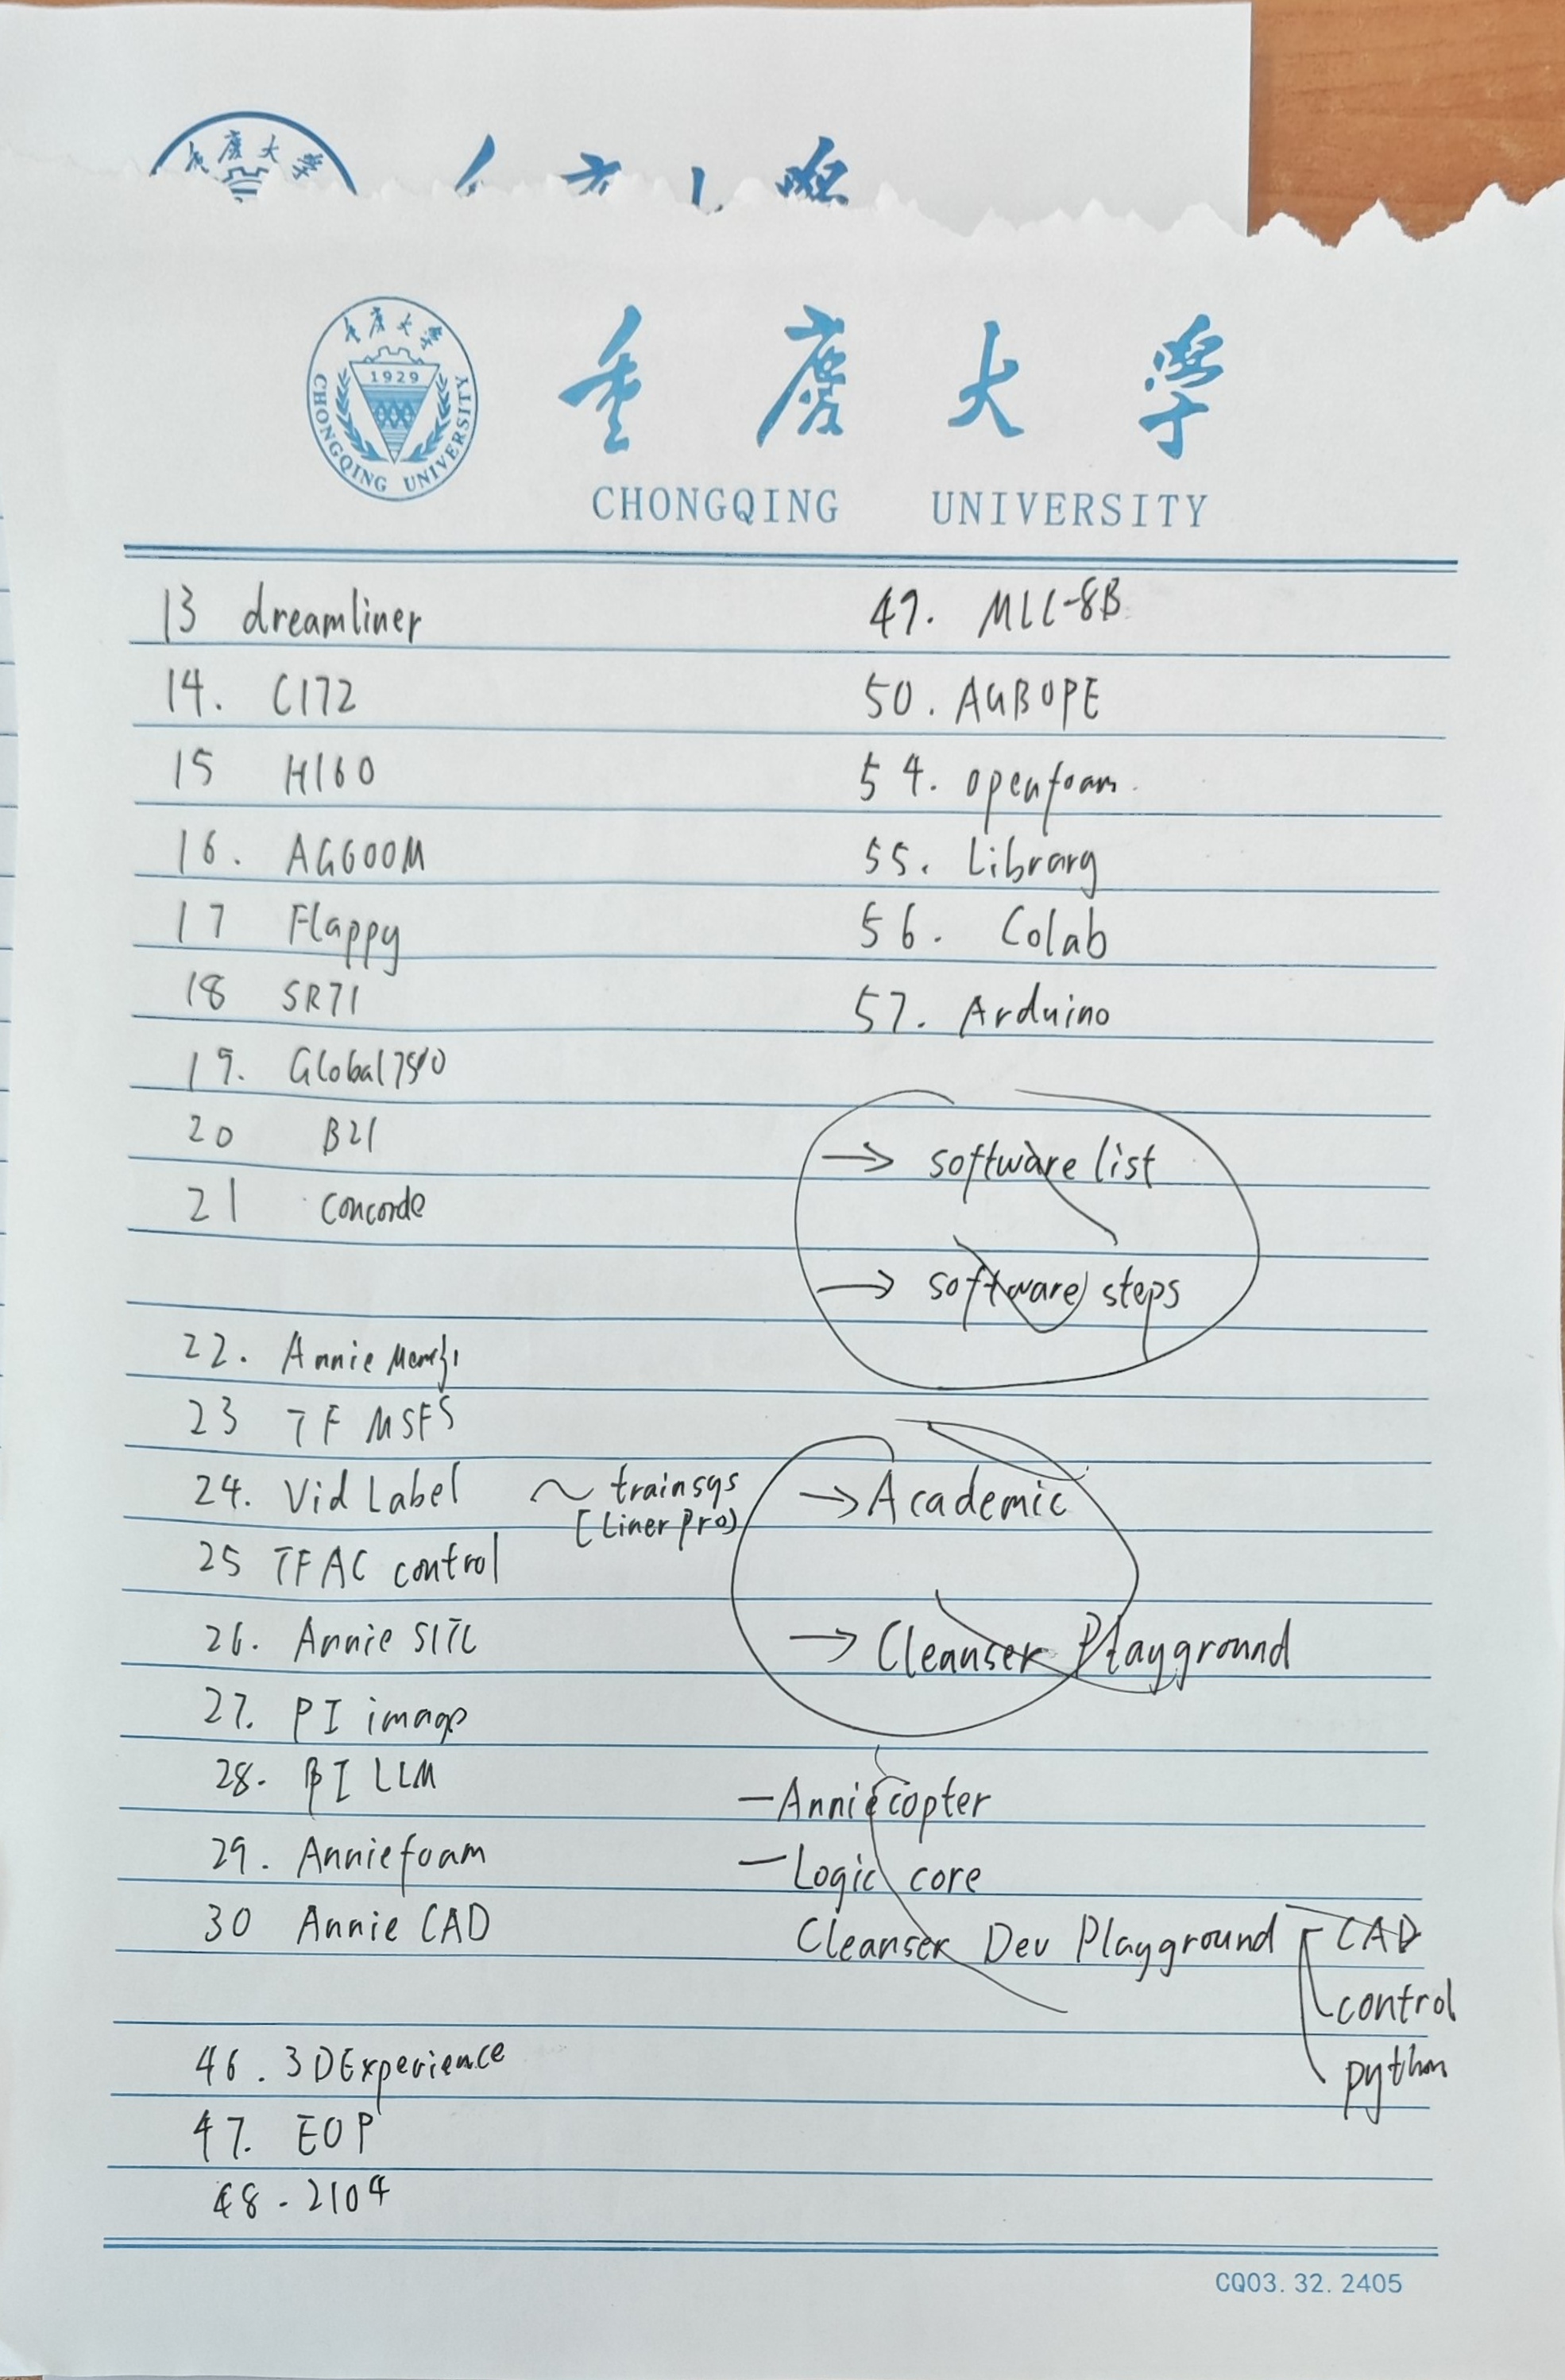 重庆大学
重庆大学
1929
CHONGQING UNIVERSITY
重庆大学
CHONGQING UNIVERSITY
13 dreamliner
14. C172
15 H160
16. AG600M
17 Flappy
18 SR71
19. Global7500
20 B21
21 Concorde
22. Annie
23 TF MSFS
24. Vid Label ~ trainsys
[Liner Pro)
25 TFAC control
26. Annie SITL
27. PI image
28. PI LLM
29. Anniefoam
30 Annie CAD
46. 3DExperience
47. EOP
48. 2104
49. MLC-8B
50. AGBOPE
54. openfoam.
55. Library
56. Colab
57. Arduino
→ software list
→ software steps
→ Academic
→ Cleanser Playground
— Anniecopter
— Logic core
Cleanser Dev Playground
CAD
control
python
CQ03.32.2405